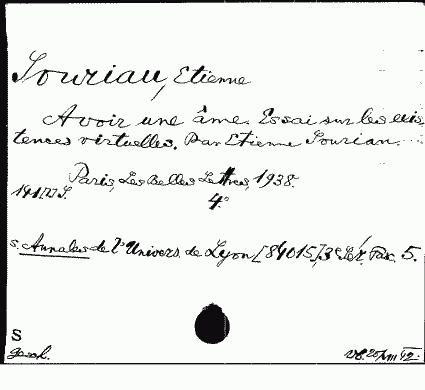 Souriau, Etienne
Avoir une âme. Essai sur les exis
tences virtuelles. Par Etienne Souriau.
Paris, Les Belles Lettres, 1938.
141[?] S. 4°
s. Annales de l'Univers. de Lyon [84015], 3e Sér. Fasc. 5.
S